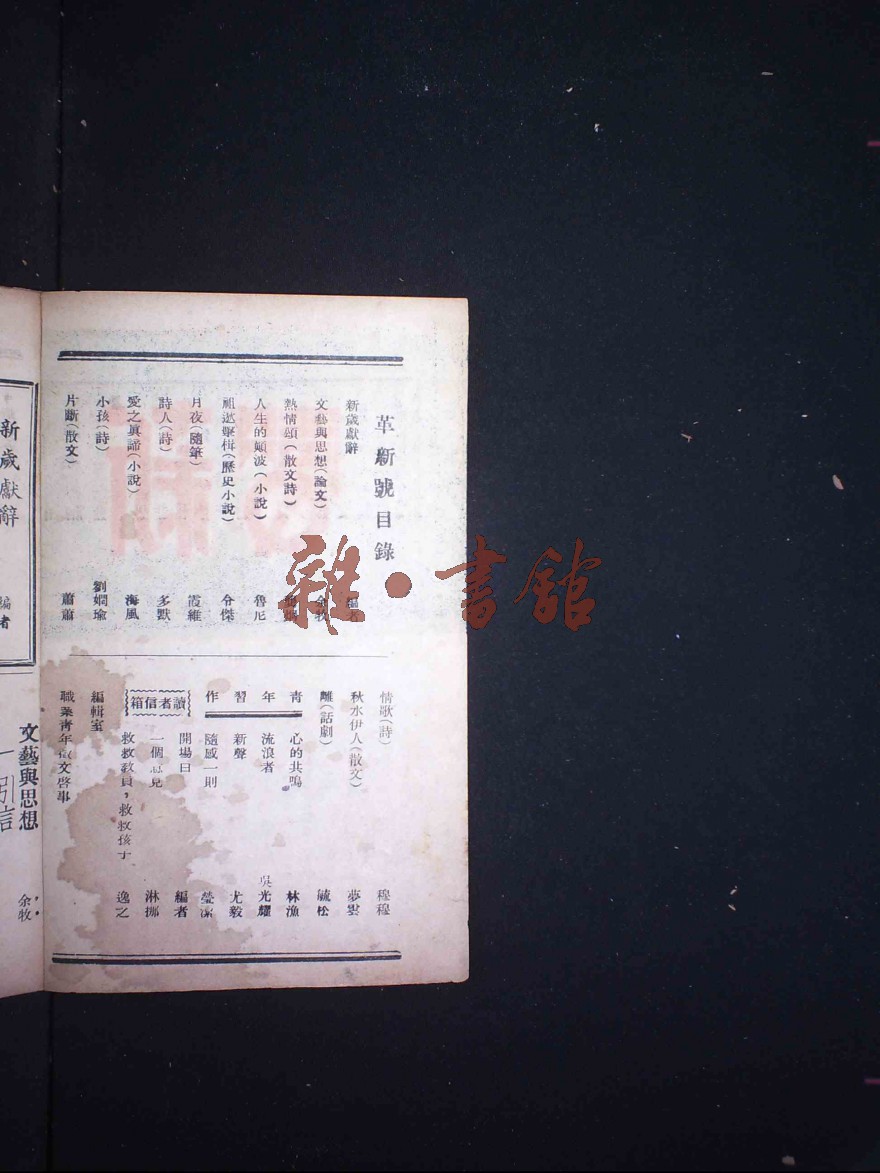 革新號目錄
新歲獻辭 編者
文藝與思想(論文) 余牧
熱情頌(散文詩)
人生的顛波(小說) 魯厖
祖逖擊楫(歷史小說) 令傑
月夜(隨筆) 霞維
詩人(詩) 多默
愛之眞諦(小說) 海風
小孩(詩) 劉嫻瑜
片斷(散文) 蕭蕭
情歌(詩) 穆穆
秋水伊人(散文) 夢雲
離(話劇) 毓松
青年習作
心的共鳴 林漁
流浪者 吳光耀
新聲 尤毅
隨感一則 瑩潔
讀者信箱
開場白 編者
一個意見 淋挪
救救敎員，救救孩子 逸之
編輯室
職業青年徵文啓事
新歲獻辭
編者
文藝與思想
一 引言
余牧
雜·書館